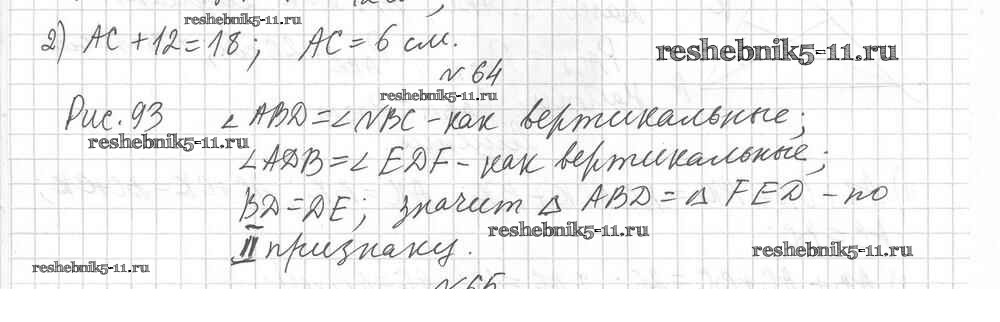 reshebnik5-11.ru
2) AC + 12 = 18; AC = 6 см.
reshebnik5-11.ru
№ 64
reshebnik5-11.ru
Рис. 93 ∠ ABD = ∠ NBC - как вертикальные;
reshebnik5-11.ru
∠ ADB = ∠ EDF - как вертикальные;
BD = DE; значит Δ ABD = Δ FED - по
reshebnik5-11.ru
II признаку.
reshebnik5-11.ru
reshebnik5-11.ru
№ 65